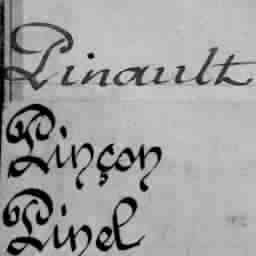 Pinault
Pinçon
Pinel